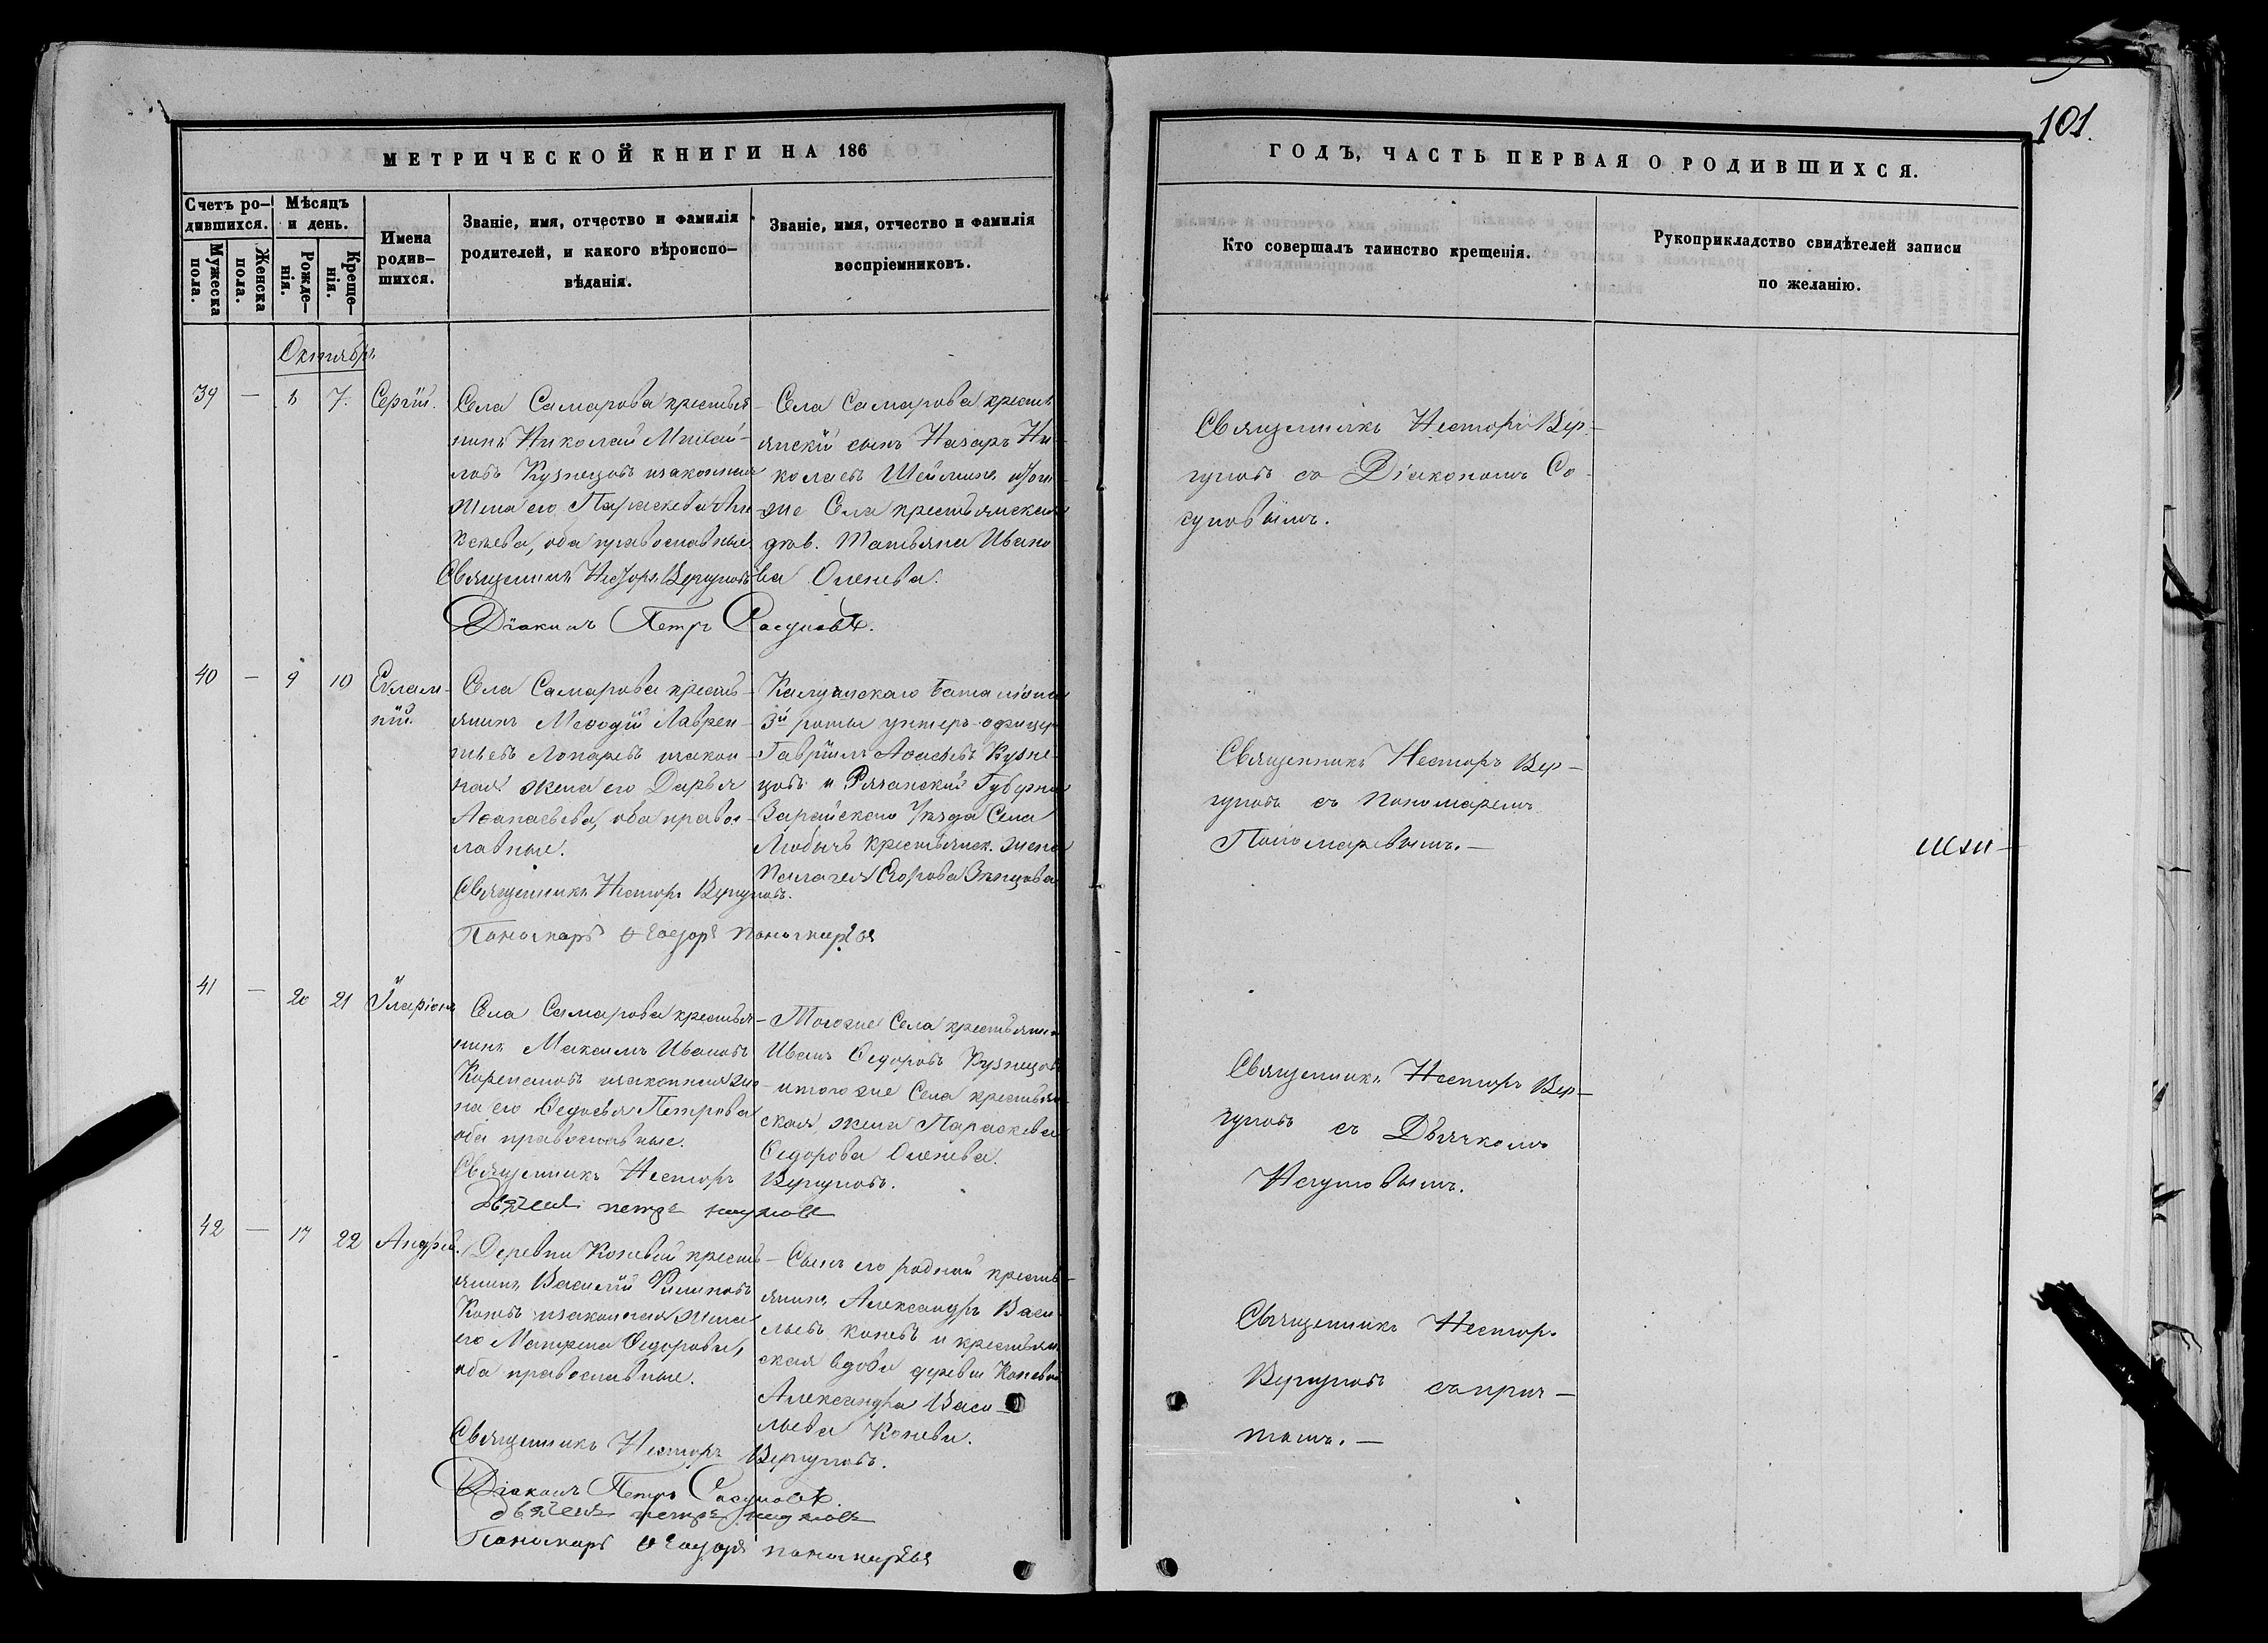 101.
МЕТРИЧЕСКОЙ КНИГИ НА 186
ГОДЪ, ЧАСТЬ ПЕРВАЯ О РОДИВШИХСЯ.
Счетъ ро-
дившихся.
Мужеска
пола.
Женска
пола.
Мѣсяцъ
и день.
Рожде-
нія.
Креще-
нія.
Имена
родив-
шихся.
Званіе, имя, отчество и фамилія
родителей, и какого вѣроиспо-
вѣданія.
Званіе, имя, отчество и фамилія
воспріемниковъ.
Кто совершалъ таинство крещенія.
Рукоприкладство свидѣтелей записи
по желанію.
Октябрь
39 — 7. Сергій.
Села Самарова крестья-
нинъ Николай Михай-
ловъ Кузнецовъ изаконная
жена его Параскева
оба православные
Священникъ Несторъ Вергуновъ
Діаконъ Петръ Сосуновъ.
Села Самарова кресть
янскій сынъ Назаръ Ни-
колаевъ Шейминъ итого
же Села крестьянская
дѣв. Татьяна Ивано
ва Оленева.
Священникъ Несторъ Вер-
гуновъ со Діакономъ Со-
суновымъ.
40 — 9 10 Евлам-
пій.
Села Самарова кресть-
янинъ Меѳодій Лаврен-
тьевъ Лопаревъ изакон-
ная жена его Дарья
Аѳанасьева, оба правос-
лавные.
Священникъ Несторъ Вергуновъ.
Пономарь Ѳеодоръ Пономаревъ
Батальона
3й роты унтеръ-офицеръ
Гавріилъ Кузне-
цовъ и Рязанской Губерніи
Зарайского Уѣзда Села
Любичъ крестьянск. жена
Пелагея Егорова
Священникъ Несторъ Вер-
гуновъ съ Пономаремъ
Пономаревымъ.—
41 — 20 21 Иларіонъ
Села Самарова крестья-
нинъ Максимъ Ивановъ
Корепановъ изаконная же-
на его Ѳедосья Петрова
оба православные.
Священникъ Несторъ Вергуновъ.
Дьячекъ Петръ
Тогоже Села крестьянинъ
Иванъ Ѳедоровъ Кузнецовъ
итогоже Села крестьян-
ская жена Параскева
Ѳедорова Оленева.
Священникъ Несторъ Вер-
гуновъ съ Дьячкомъ
42 — 17 22 Андрей.
Деревни Коневой кресть-
янинъ Василій Филиповъ
Коневъ изаконная жена
его Матрена Ѳедорова,
оба православные.
Священникъ Несторъ Вергуновъ.
Діаконъ Петръ Сосуновъ.
Дьячекъ Петръ
Пономарь Ѳеодоръ Пономаревъ
Сынъ его родной кресть-
янинъ Александръ Васи-
льевъ Коневъ и крестьян
ская вдова деревни Коневой
Александра Васи-
льева Конева.
Священникъ Несторъ
Вергуновъ съ прич-
томъ.—